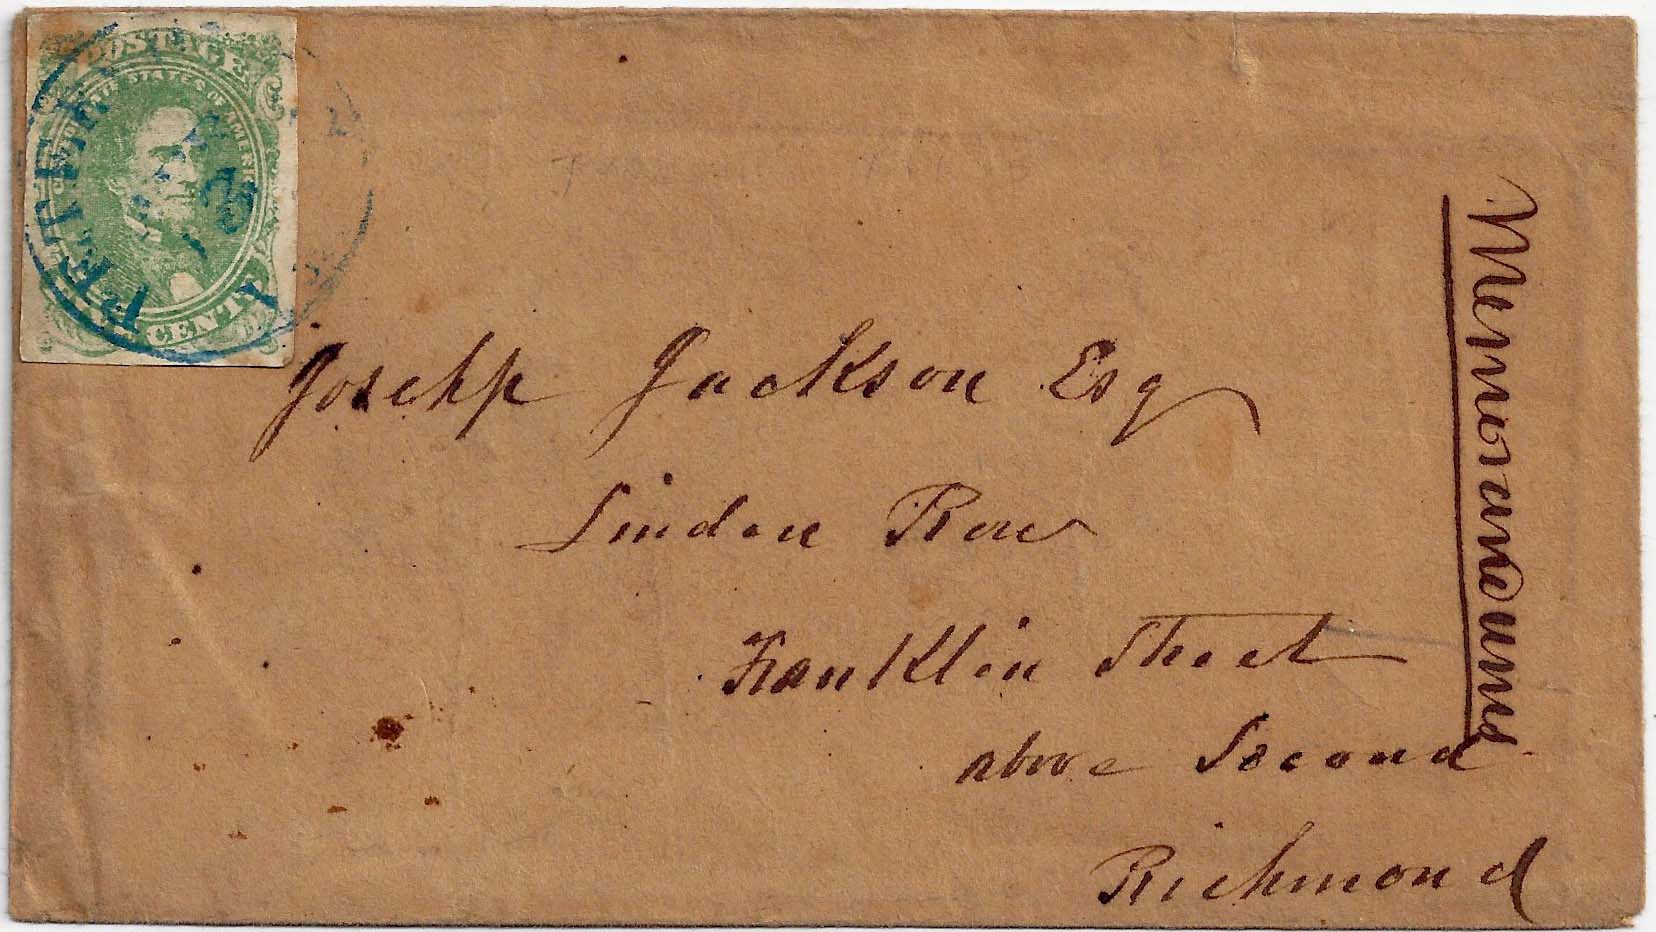 POSTAGE
STATES OF AMERICA
CENTS
PETER
Josehp Jackson Esq
Linden Row
Franklin Street
above Second
Richmond
Memorandums